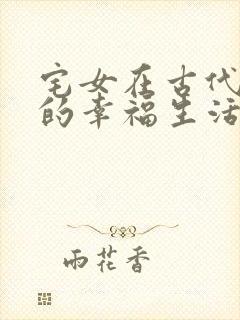 宅女在古代
的幸福生活
雨花香